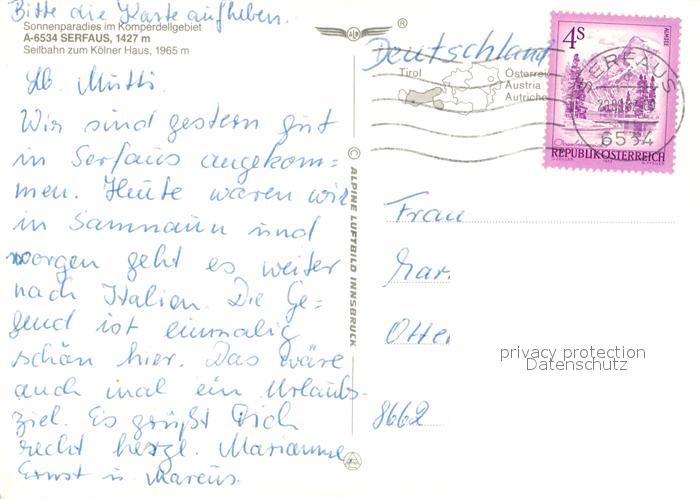 Bitte die Karte aufheben.
Sonnenparadies im Komperdellgebiet
A-6534 SERFAUS, 1427 m
Seilbahn zum Kölner Haus, 1965 m
®
Lb. Mutti.
Wir sind gestern gut
in Serfaus angekom=
men. Heute waren wir
in Samnaun und
morgen geht es weiter
nach Italien. Die Ge=
gend ist einmalig
schön hier. Das wäre
auch mal ein Urlaubs-
ziel. Es grüßt Dich
recht herzl. Marianne,
Ernst u. Marcus.
© ALPINE LUFTBILD INNSBRUCK
Deutschland
Tirol
Österrei
Austria
Autriche
4S
ALMSEE
SERFAUS
6534
REPUBLIK ÖSTERREICH
Frau
Mar.
Otte
8662
privacy protection
Datenschutz